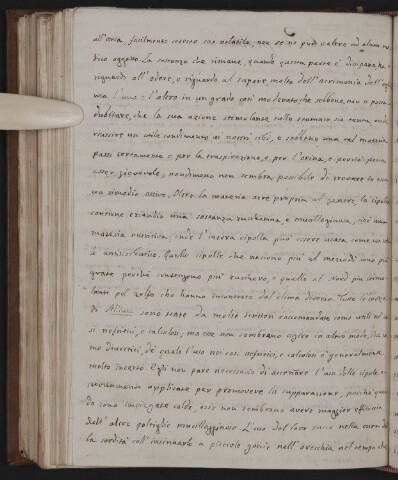 all'aria facilmente essere sua volatile, non se ne può valere ad alcun me
dico oggetto. La sostanza che rimane, quando questa parte è dissipata, ha
riguardo all'odore, e riguardo al sapore molto dell'acrimonia dell'aglio
ma l'uno e l'altro in un grado così moderato che sebbene non si possa
dubitare, che la sua azione stimolante sullo stomaco sia tanta, onde
riuscire un utile condimento ai nostri cibi, e sebbene una tal materia
passi certamente e per la traspirazione, e per l'orina, e perciò possa
esser giovevole, nondimeno non sembra possibile di trovare in essa
un rimedio attivo. Oltre la materia acre propria al genere, la cipolla
contiene eziandio una sostanza zuccherina e mucillaginosa, cioè una
materia nutritiva, onde l'intera cipolla può essere usata come un
le antiscorbutico. Quelle cipolle che nascono più al mezzodì sono più
grate perchè contengono più zucchero, e quelle al Nord più stimo
lanti pel zolfo che hanno incontrato dal clima diverso. Tutte le specie
di Allium sono state da molti scrittori raccomandate come utili ad
si nefritici, e calcolosi, ma esse non sembrano agire in altro modo, che co
me diuretici, de' quali l'uso nei casi nefritici, e calcolosi è generalmente
molto incerto. Egli non pare necessario di accennare l'uso delle cipolle e
steriormente applicate per promovere la suppurazione, poichè quan
do sono impiegate calde, esse non sembrano avere maggior efficacia
dell'altre poltiglie mucillagginose. L'uso del loro succo nella cura del
la sordità coll'insinuarlo a picciole goccie nell'orecchia nel tempo che